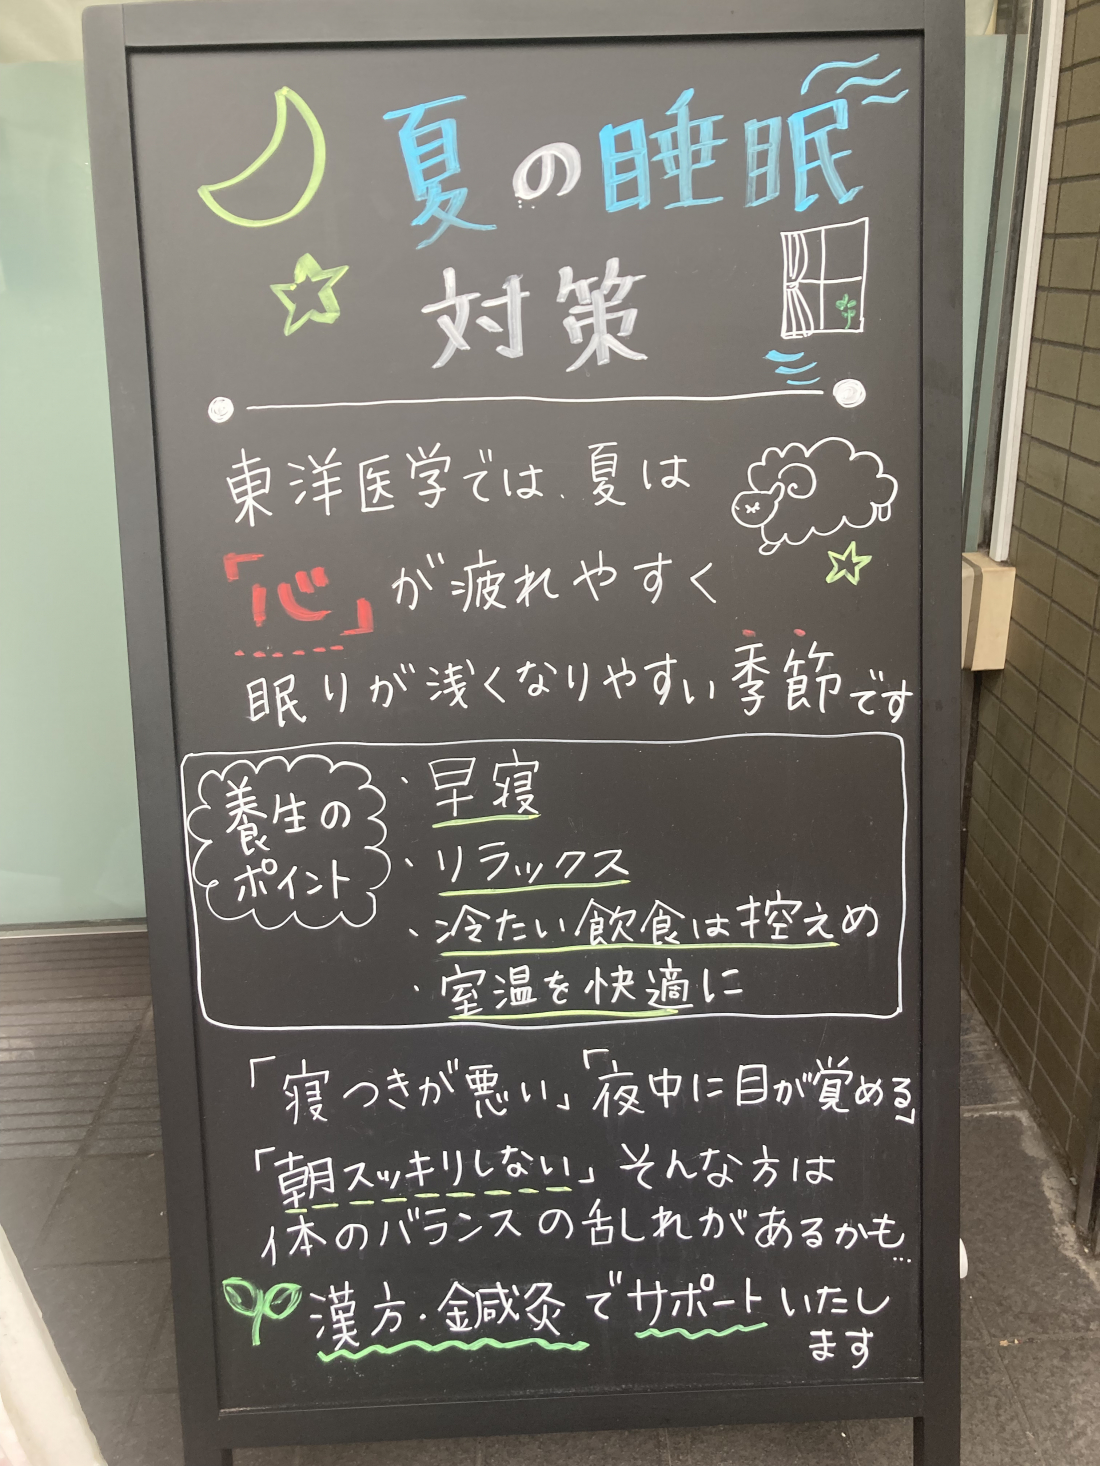 夏の睡眠
対策
東洋医学では、夏は
「心」が疲れやすく
眠りが浅くなりやすい季節です
養生の
ポイント
・早寝
・リラックス
・冷たい飲食は控えめ
・室温を快適に
「寝つきが悪い」「夜中に目が覚める」
「朝スッキリしない」そんな方は
体のバランスの乱れがあるかも…
漢方・鍼灸でサポートいたし
ます